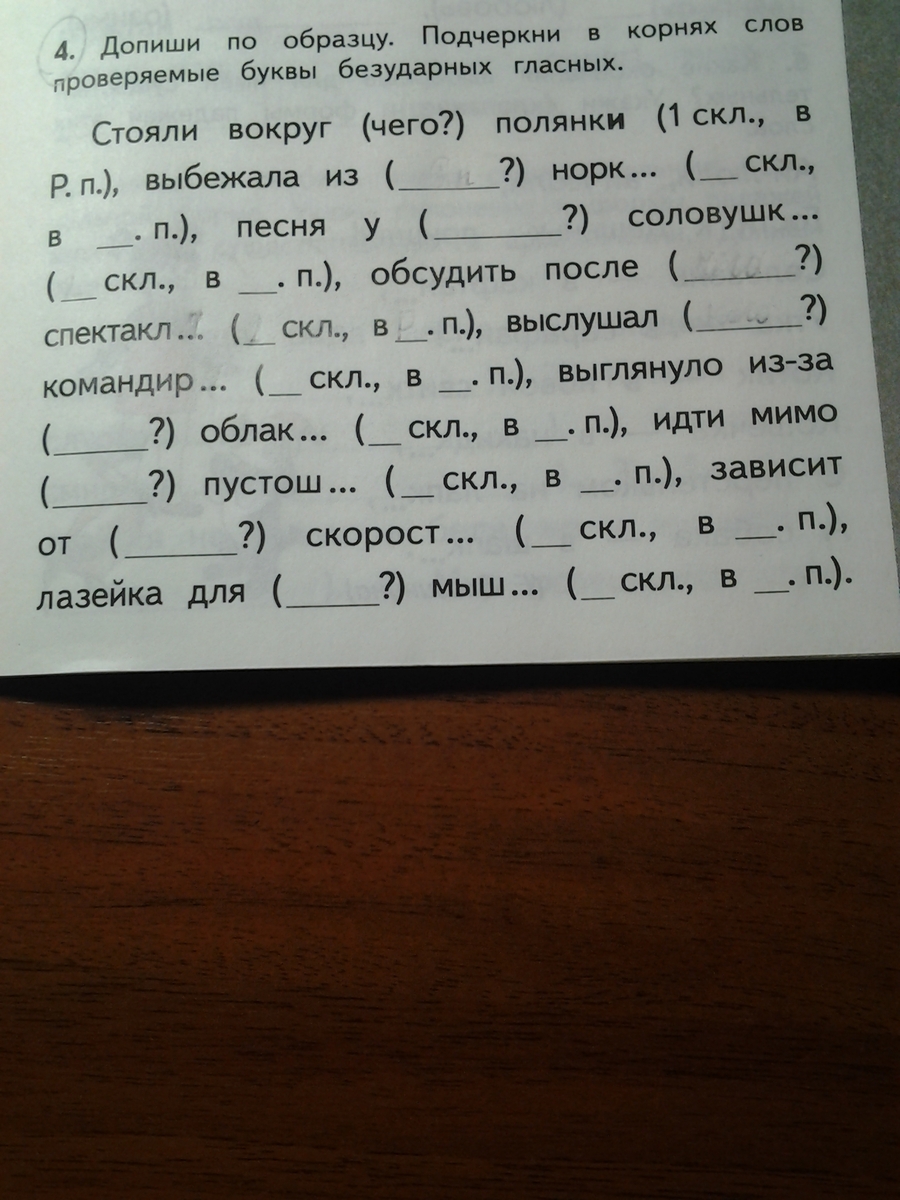 4. Допиши по образцу. Подчеркни в корнях слов
проверяемые буквы безударных гласных.
Стояли вокруг (чего?) полянки (1 скл., в
Р. п.), выбежала из (______?) норк... (__ скл.,
в __. п.), песня у (_______?) соловушк...
(__ скл., в __. п.), обсудить после (______?)
спектакл... (__ скл., в __. п.), выслушал (______?)
командир... (__ скл., в __. п.), выглянуло из-за
(_____?) облак... (__ скл., в __. п.), идти мимо
(_____?) пустош... (__ скл., в __. п.), зависит
от (______?) скорост... (__ скл., в __. п.),
лазейка для (_____?) мыш... (__ скл., в __. п.).